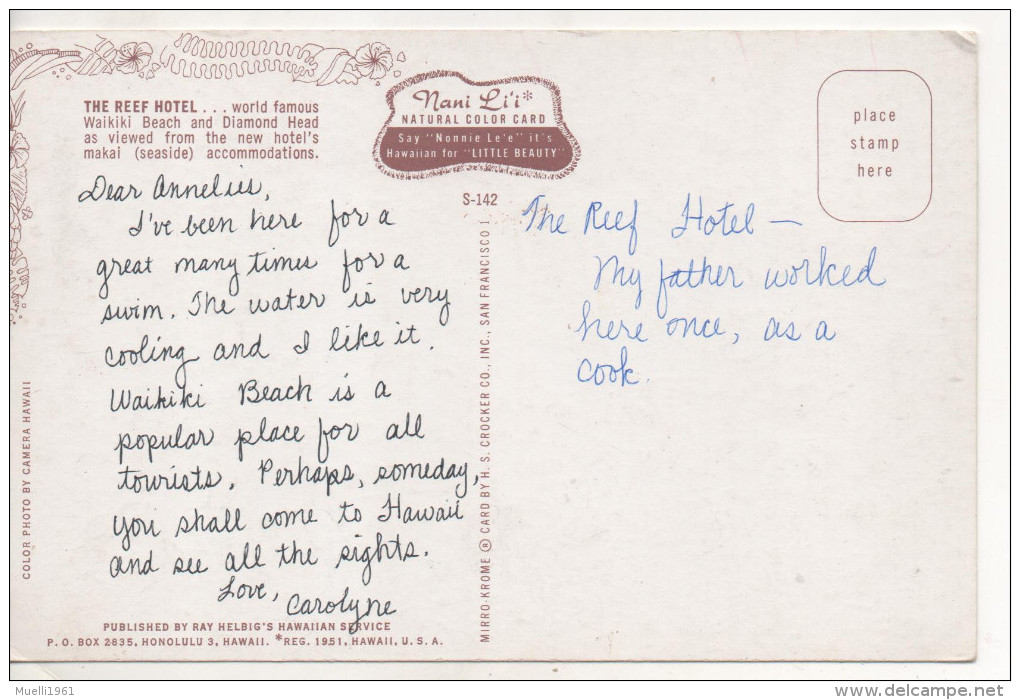 THE REEF HOTEL . . . world famous
Waikiki Beach and Diamond Head
as viewed from the new hotel's
makai (seaside) accommodations.
Nani Li'i*
NATURAL COLOR CARD
Say "Nonnie Le'e" it's
Hawaiian for "LITTLE BEAUTY"
place
stamp
here
S-142
Dear Annelies,
I've been here for a
great many times for a
swim. The water is very
cooling and I like it.
Waikiki Beach is a
popular place for all
tourists. Perhaps, someday,
you shall come to Hawaii
and see all the sights.
Love,
Carolyne
The Reef Hotel —
My father worked
here once, as a
cook.
COLOR PHOTO BY CAMERA HAWAII
MIRRO-KROME ® CARD BY H. S. CROCKER CO., INC., SAN FRANCISCO 1
PUBLISHED BY RAY HELBIG'S HAWAIIAN SERVICE
P. O. BOX 2835, HONOLULU 3, HAWAII. *REG. 1951, HAWAII, U. S. A.
Muelli1961
delcampe.net